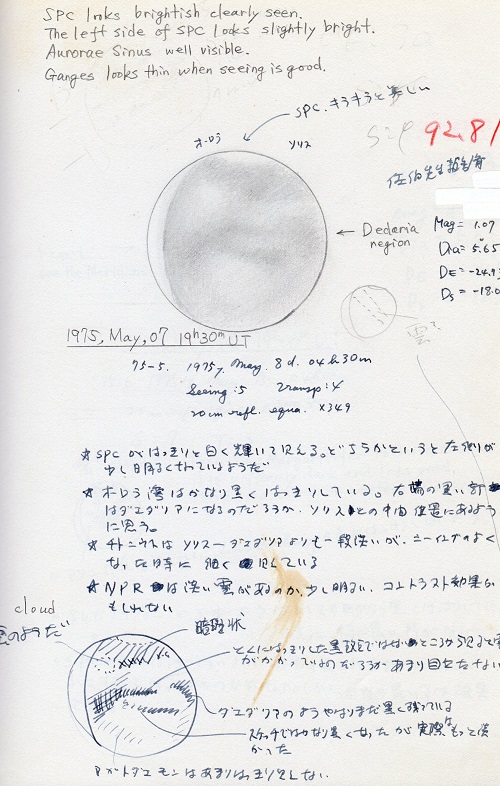 SPC looks brightish clearly seen.
The left side of SPC looks slightly bright.
Aurorae Sinus well visible.
Ganges looks thin when seeing is good.
SPC. キラキラと美しい
オーロラ ソリス
92.81
佐伯先生報告済
Mag= 1.07
Dia= 5.65
DE= -24.9
Ds= -18.0
← Dedaria region
雲?
1975, May, 07 19h30m UT
75-5. 1975y May. 8d. 04h30m
Seeing: 5 Transp: 4
20cm refl. equa. x349
☆ SPCがはっきりと白く輝いて見える。どちらかというと左側が
少し明るくみれているようだ
☆ オーロラ湾はかなり黒くはっきりしている。右端の黒い部
はダエダリアになるのだろうか、ソリスとの中間位置にあるように
思う。
☆ チトニウスはソリス―ダエダリアよりも一段淡いが、シーイングのよく
なった時に細く見えている
☆ NPRは淡い雲があるのか、少し明るい、コントラスト効果か
もしれない
cloud
雲のようだ
暗斑状
とくにはっきりした黒斑ではない
がかかっているのだろうか あまり目立たない
ダエダリアのようやはりまだ黒く残っている
スケッチではかなり黒くなったが実際はもっと淡
かった
アガトダエモンはあまりはっきりしない.